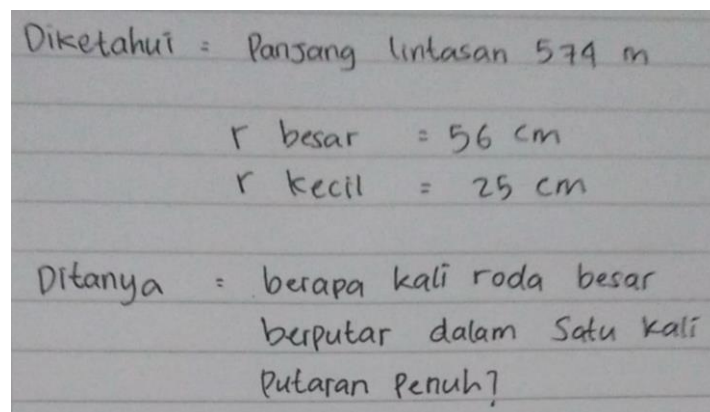 Diketahui = Panjang lintasan 574 m
r besar = 56 cm
r kecil = 25 cm
Ditanya = berapa kali roda besar
berputar dalam Satu kali
Putaran Penuh?